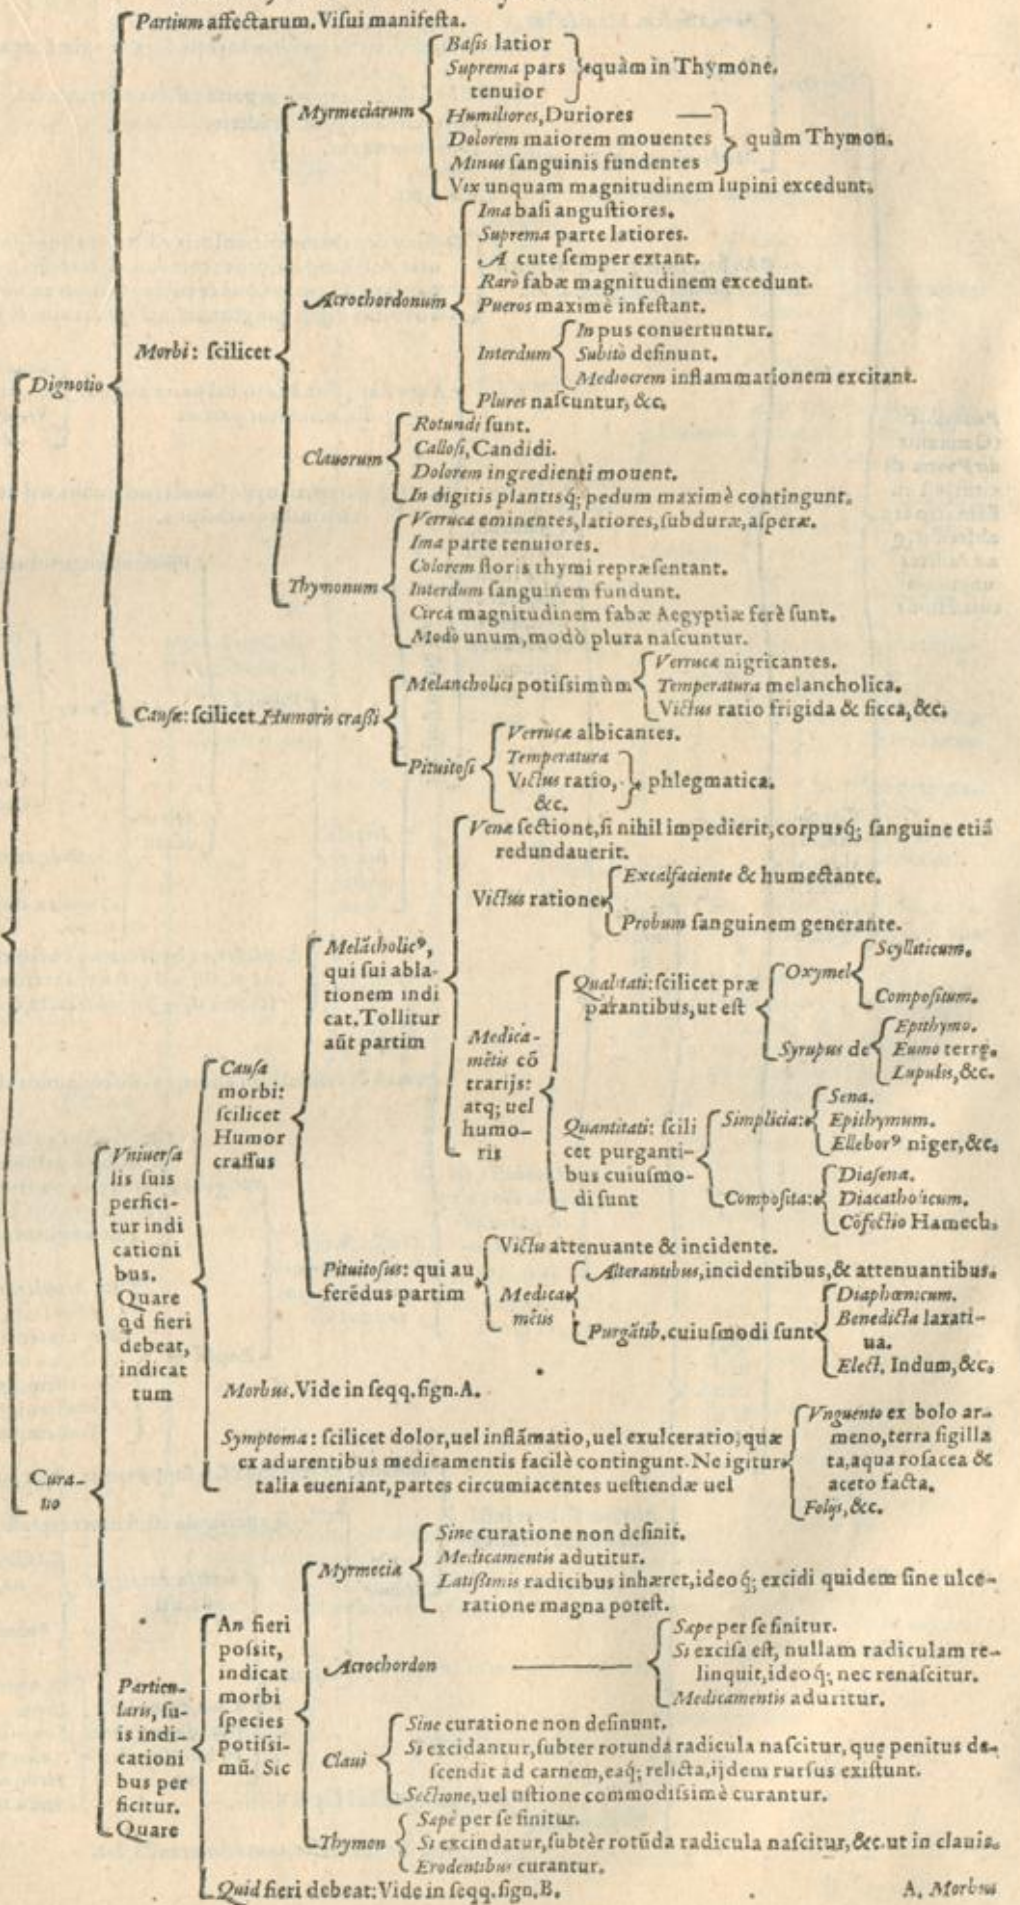 Partium affectarum. Visui manifesta.
Dignotio
Morbi: scilicet
Myrmeciarum
Basis latior
Suprema pars
tenuior
quàm in Thymone.
Humiliores, Duriores
Dolorem maiorem mouentes
Minus sanguinis fundentes
quàm Thymon.
Vix unquam magnitudinem lupini excedunt.
Acrochordonum
Ima basi angustiores.
Suprema parte latiores.
A cute semper extant.
Rarò fabæ magnitudinem excedunt.
Pueros maximè infestant.
Interdum
In pus conuertuntur.
Subitò desinunt.
Mediocrem inflammationem excitant.
Plures nascuntur, &c.
Clauorum
Rotundi sunt.
Callosi, Candidi.
Dolorem ingredienti mouent.
In digitis plantisq; pedum maximè contingunt.
Thymonum
Verrucæ eminentes, latiores, subduræ, asperæ.
Ima parte tenuiores.
Colorem floris thymi repræsentant.
Interdum sanguinem fundunt.
Circa magnitudinem fabæ Aegyptiæ ferè sunt.
Modò unum, modò plura nascuntur.
Causæ: scilicet Humoris crassi
Melancholici potissimùm
Verrucæ nigricantes.
Temperatura melancholica.
Victus ratio frigida & sicca, &c.
Pituitosi
Verrucæ albicantes.
Temperatura
Victus ratio,
&c.
phlegmatica.
Curatio
Vniuersa
lis suis
perfici-
tur indi
cationi
bus.
Quare
qd fieri
debeat,
indicat
tum
Causa
morbi:
scilicet
Humor
crassus
Melācholicꝰ,
qui sui abla-
tionem indi
cat. Tollitur
aūt partim
Venæ sectione, si nihil impedierit, corpusq́; sanguine etiā
redundauerit.
Victus ratione
Excalfaciente & humectante.
Probum sanguinem generante.
Medica-
mētis cō
trarijs:
atq; uel
humo-
ris
Qualitati: scilicet præ
parantibus, ut est
Oxymel
Scylliticum.
Compositum.
Syrupus de
Epithymo.
Fumo terrę.
Lupulis, &c.
Quantitati: scili
cet purganti-
bus cuiusmo-
di sunt
Simplicia:
Sena.
Epithymum.
Elleborꝰ niger, &c.
Composita:
Diasena.
Diacatholicum.
Cōfectio Hamech.
Pituitosus: qui au
ferēdus partim
Victu attenuante & incidente.
Medica
mētis
Alterantibus, incidentibus, & attenuantibus.
Purgātib. cuiusmodi sunt
Diaphœnicum.
Benedicta laxati-
ua.
Elect. Indum, &c.
Morbus. Vide in seqq. sign. A.
Symptoma: scilicet dolor, uel inflāmatio, uel exulceratio, quæ
ex adurentibus medicamentis facilè contingunt. Ne igitur
talia eueniant, partes circumiacentes uestiendæ uel
Vnguento ex bolo ar-
meno, terra sigilla
ta, aqua rosacea &
aceto facta.
Folijs, &c.
Particu-
laris, su-
is indi-
cationi
bus per
ficitur.
Quare
An fieri
possit,
indicat
morbi
species
potissi-
mū. Sic
Myrmecia
Sine curatione non desinit.
Medicamentis aduritur.
Latissimis radicibus inhæret, ideoq́; excidi quidem sine ulce-
ratione magna potest.
Acrochordon
Sæpe per se finitur.
Si excisa est, nullam radiculam re-
linquit, ideoq́; nec renascitur.
Medicamentis aduritur.
Claui
Sine curatione non desinunt.
Si excidantur, subter rotunda radicula nascitur, quę penitus de-
scendit ad carnem, eaq́; relicta, ijdem rursus existunt.
Sectione, uel ustione commodissimè curantur.
Thymon
Sæpè per se finitur.
Si excindatur, subtèr rotūda radicula nascitur, &c. ut in clauis.
Erodentibus curantur.
Quid fieri debeat: Vide in seqq. sign. B.
A. Morbus